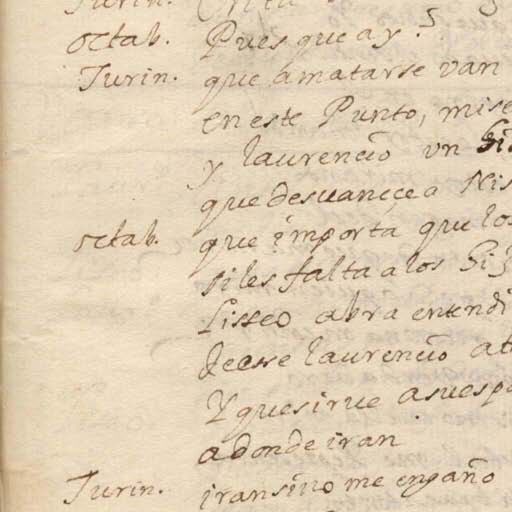 Turin.
octab. Pues que ay. 5
Turin. que amatarse van
en este Punto, mise
y laurencio vn
que desuanece a Nis
octab. que importa que los
si les falta a los
Liseo abra entendi
de esse laurencio at
Y que sirue a su esp
a donde iran
Turin. iran si no me engaño